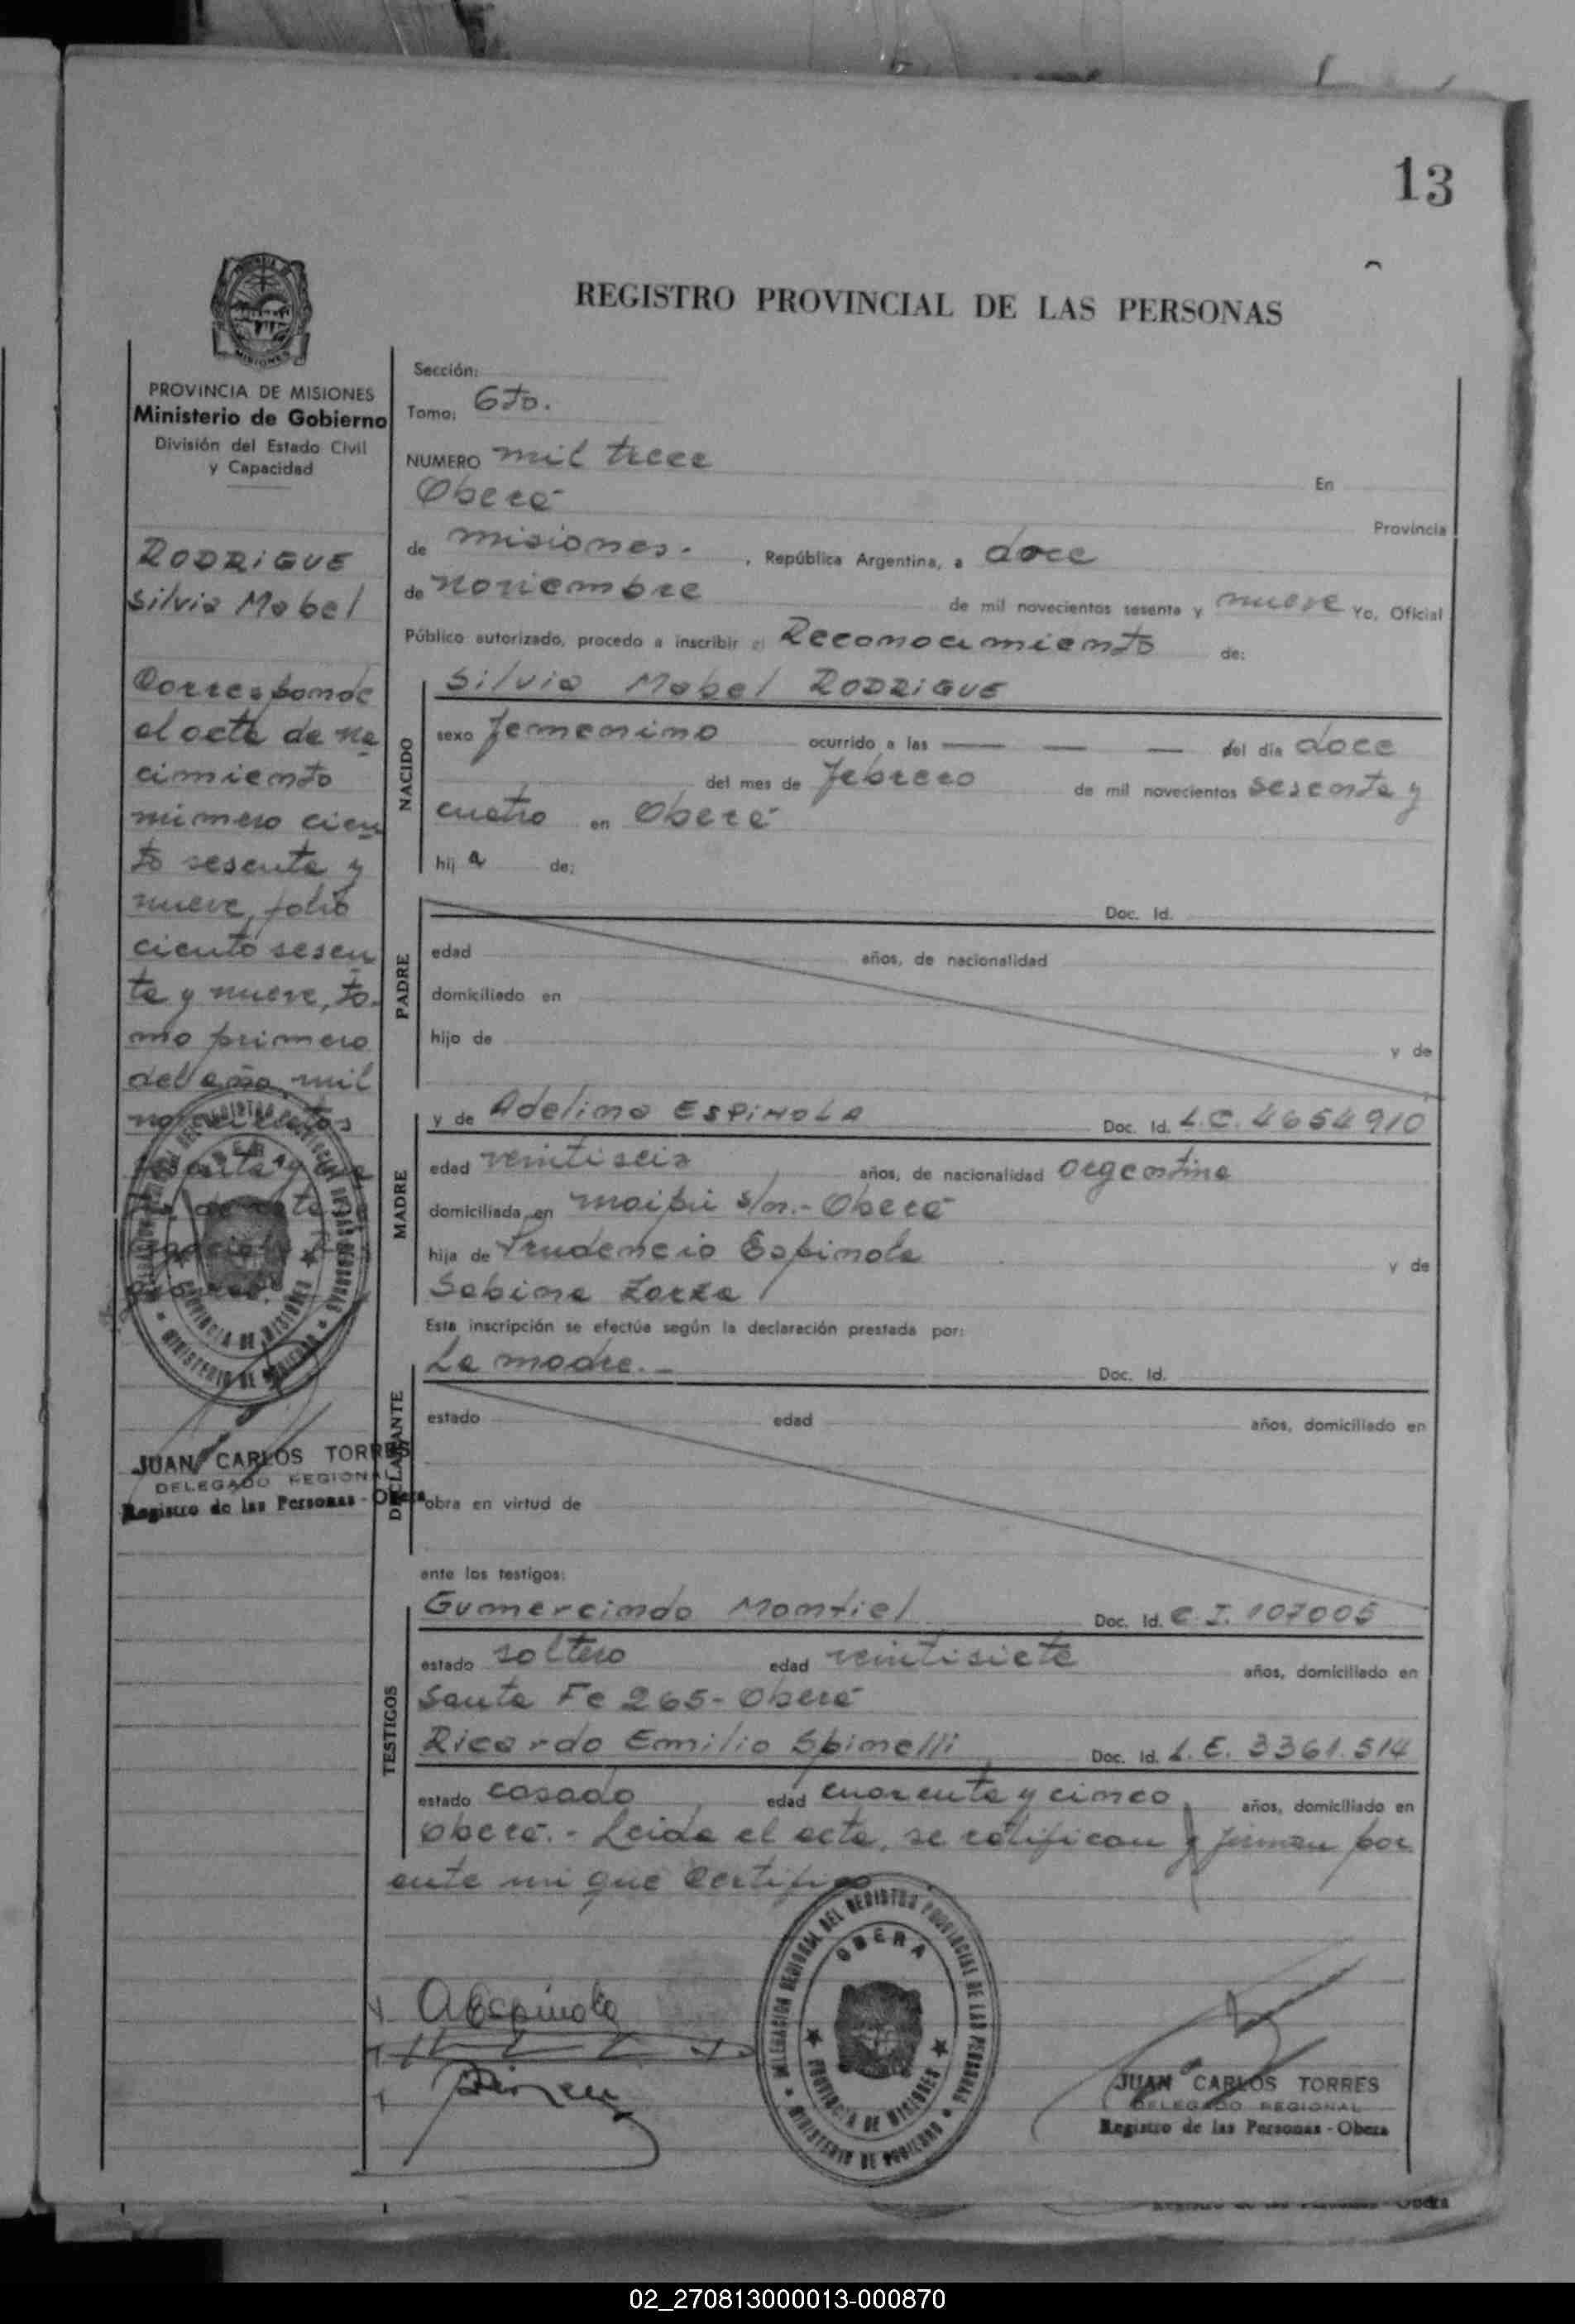 13
REGISTRO PROVINCIAL DE LAS PERSONAS
PROVINCIA DE MISIONES
Ministerio de Gobierno
División del Estado Civil
y Capacidad
RODRIGUE
Silvia Mabel
Corresponde
al acta de na
cimiento
número cien
to sesenta y
nueve, folio
ciento sesen
ta y nueve, to-
mo primero
del año mil
novecientos
sesenta y
JUAN CARLOS TORRES
DELEGADO REGIONAL
Registro de las Personas - Obera
Sección:
Tomo: 6to.
NUMERO mil trece En
Oberá Provincia
de misiones. , República Argentina, a doce
de noviembre de mil novecientos sesenta y nueve Yo, Oficial
Público autorizado, procedo a inscribir el Reconocimiento de:
NACIDO
Silvia Mabel RODRIGUE
sexo femenino ocurrido a las — — — del día doce
del mes de febrero de mil novecientos sesenta y
cuatro en Oberá
hij a de:
PADRE
Doc. Id.
edad años, de nacionalidad
domiciliado en
hijo de y de
MADRE
y de Adelina ESPINOLA Doc. Id. L.C. 4654910
edad veintiseis años, de nacionalidad argentina
domiciliada en maipú s/n.- Oberá
hija de Prudencio Espinola y de
Sabina Zarza
Esta inscripción se efectúa según la declaración prestada por:
DECLARANTE
La madre.- Doc. Id.
estado edad años, domiciliado en
obra en virtud de
ante los testigos:
TESTIGOS
Gumercindo Montiel Doc. Id. C.I. 107005
estado soltero edad veintisiete años, domiciliado en
Santa Fe 265- Oberá
Ricardo Emilio Spinelli Doc. Id. L.E. 3361.514
estado casado edad cuarenta y cinco años, domiciliado en
Oberá.- Leida el acta, se ratifican y firman por
ante mi que certifico
AEspinola
DELEGACION REGIONAL DEL REGISTRO PROVINCIAL DE LAS PERSONAS
OBERA
PROVINCIA DE MISIONES
MINISTERIO DE GOBIERNO
JUAN CARLOS TORRES
DELEGADO REGIONAL
Registro de las Personas - Obera
02_270813000013-000870